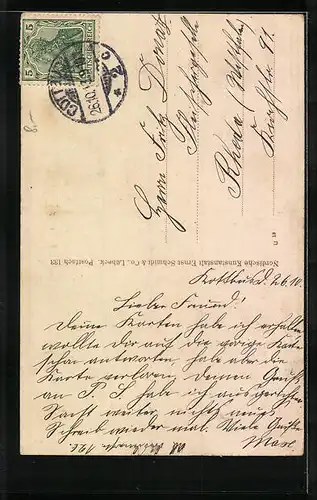 5 5
DEUTSCHES REICH
COTT
26.10.1
* 2 c
8.-
Herrn Fritz
Rheda (Westfalen)
Nordische Kunstanstalt Ernst Schmidt & Co., Lübeck. Postfach 132
U 18
Kottbus d. 26.10.
Lieber Freund!
Deine Karten habe ich erhalten
wollte dir auf die vorige Karte
schon antworten, habe aber die
Karte verloren Deinen Gruß
an P. S. habe ich ausgerichtet
Sonst weiter nichts neues
Schreib wieder mal. Viele Grüße
Max